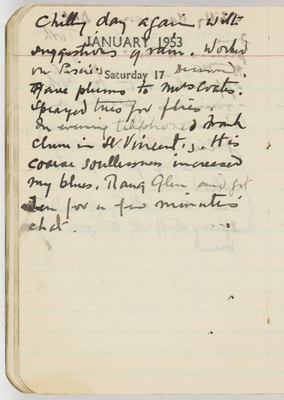 Chilly day again with
suggestions of rain. Worked
JANUARY 1953
on
Saturday 17
Gave plums to Mrs Coates.
Sprayed trees for flies
In evening telephoned Frank
Clune in St Vincent's. His
coarse soullessness increased
my blues. Rang Glen and got
Len for a few minutes'
chat.